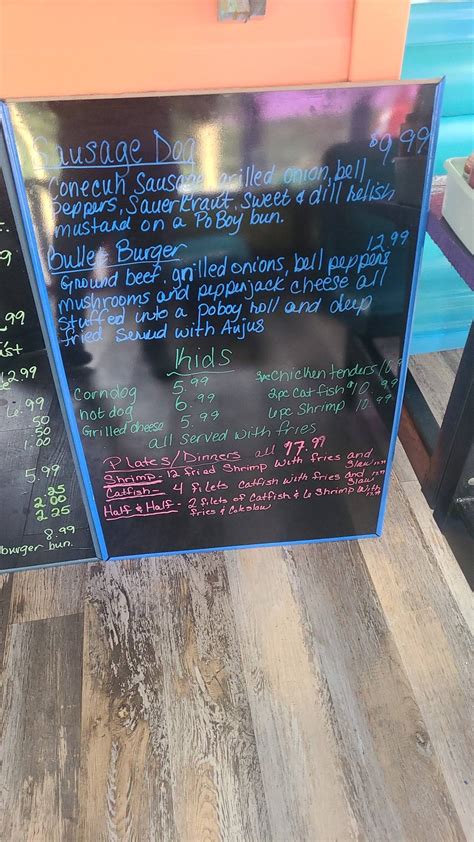 Sausage Dog $9.99
Conecuh Sausage, grilled onion, bell
peppers, Sauerkraut, Sweet & dill Relish
mustard on a PoBoy bun.
Bullet Burger 12.99
Ground beef, grilled onions, bell peppers
mushrooms and pepperjack cheese all
Stuffed into a poboy roll and deep
fried Served with Aujus
Kids
Corndog 5.99
hot dog 6.99
Grilled cheese 5.99
3pc Chicken tenders 10.9
2pc Catfish $10.99
6pc Shrimp 10.99
all Served with fries
Plates/Dinners all 17.99
Shrimp 12 fried Shrimp with fries and Slaw
Catfish - 4 filets catfish with fries and Slaw
Half & Half - 2 filets of Catfish & 6 Shrimp with
fries & Coleslaw
9
.99
2.99
6.99
50
.50
1.00
5.99
2.25
2.00
2.25
8.99
burger bun.